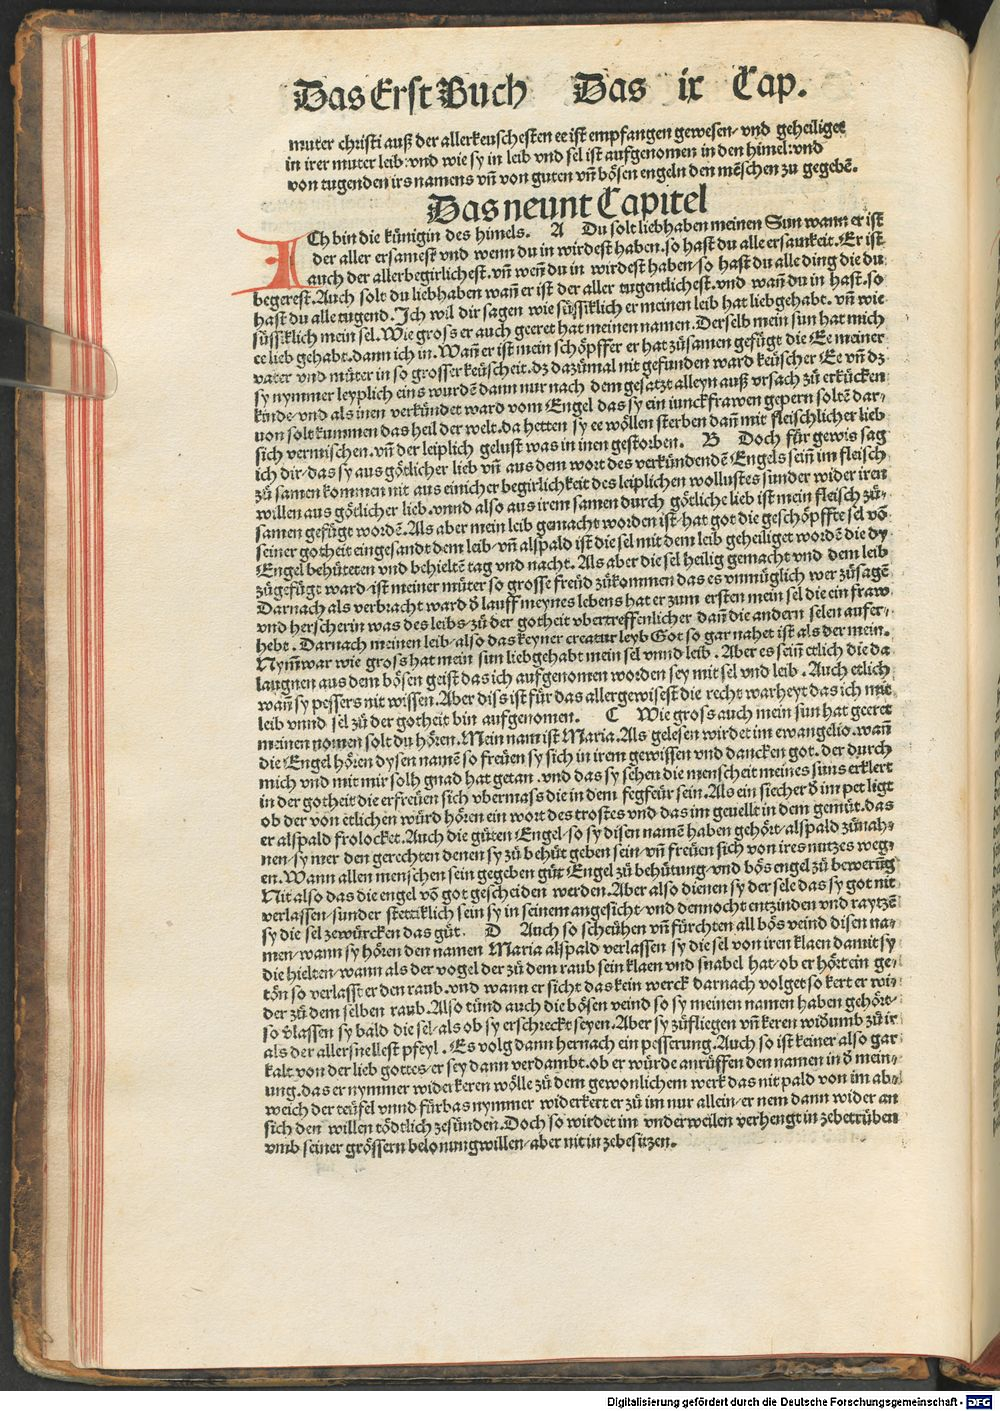 Das Erst Buch Das ix Cap.
muter christi auß der allerkeuschesten ee ist empfangen gewesen/ vnd geheiliget
in irer muter leib: vnd wie sy in leib vnd sel ist aufgenomen in den himel: vnd
von tugenden irs namens vñ von guten vñ bösen engeln den mēschen zu gegebē.
Das neunt Capitel
ICh bin die künigin des himels. A Du solt liebhaben meinen Sun wann er ist
der aller ersamest vnd wenn du in wirdest haben. so hast du alle ersamkeit. Er ist
auch der allerbegirlichest. vñ weñ du in wirdest haben/ so hast du alle ding die du
begerest. Auch solt du liebhaben wañ er ist der aller tugentlichest. vnd wañ du in hast. so
hast du alle tugend. Ich wil dir sagen wie süssiklich er meinen leib hat liebgehabt. vñ wie
süssiklich mein sel. Wie gros er auch geeret hat meinen namen. Derselb mein sun hat mich
ee lieb gehabt. dann ich in. Wañ er ist mein schöpffer er hat zůsamen gefügt die Ee meiner
vater vnd můter in so grosser keüscheit. dz dazůmal nit gefunden ward keüscher Ee vñ dz
sy nymmer leyplich eins wurdē dann nur nach dem gesatzt alleyn auß vrsach zů erkücken
kinde/ vnd als inen verkündet ward vom Engel das sy ein iunckfrawen gepern soltē dar/
uon solt kummen das heil der welt. da hetten sy ee wöllen sterben dañ mit fleischlicher lieb
sich vermischen. vñ der leiplich gelust was in inen gestorben. B Doch für gewis sag
ich dir/ das sy aus götlicher lieb vñ aus dem wort des verkündendē Engels seiñ im fleisch
zů samen kommen nit aus einicher begirlichkeit des leiplichen wollustes sunder wider iren
willen aus götlicher lieb. vnnd also aus irem samen durch götliche lieb ist mein fleisch zů/
samen gefügt wordē. Als aber mein leib gemacht worden ist/ hat got die geschöpffte sel vō
seiner gotheit eingesandt dem leib/ vñ alspald ist die sel mit dem leib geheiliget wordē die dy
Engel behüteten vnd behieltē tag vnd nacht. Als aber die sel heilig gemacht vnd dem leib
zůgefügt ward/ ist meiner můter so grosse freüd zůkommen das es vnmüglich wer zůsagē
Darnach als verbracht ward d̄ lauff meynes lebens hat er zum ersten mein sel die ein fraw
vnd herscherin was des leibs/ zů der gotheit vbertreffenlicher dañ die andern selen aufer/
hebt. Darnach meinen leib/ also das keyner creatur leyb Got so gar nahet ist als der mein.
Nym̄war wie gros hat mein sun liebgehabt mein sel vnnd leib. Aber es seiñ etlich die da
laugnen aus dem bösen geist das ich aufgenomen worden sey mit sel vnd leib. Auch etlich
wañ sy pessers nit wissen. Aber diss ist für das allergewisest die recht warheyt das ich mit
leib vnnd sel zů der gotheit bin aufgenomen. C Wie gros auch mein sun hat geeret
meinen nomen solt du hören. Mein nam ist Maria. Als gelesen wirdet im ewangelio. wañ
die Engel hören dysen namē so freüen sy sich in irem gewissen vnd dancken got. der durch
mich vnd mit mir solh gnad hat getan. vnd das sy sehen die menscheit meines suns erklert
in der gotheit die erfreüen sich vbermass die in dem fegfeür sein. Als ein siecher d̄ im pet ligt
ob der von etlichen würd hören ein wort des trostes vnd das im geuellt in dem gemüt. das
er alspald frolocket. Auch die gůten Engel/ so sy disen namē haben gehört/ alspald zůnah/
nen/ sy mer den gerechten denen sy zů behüt geben sein/ vñ freüen sich von ires nutzes weg/
en. Wann allen menschen sein gegeben gůt Engel zů behütung/ vnd bös engel zů bewerūg
Nit also das die engel vō got gescheiden werden. Aber also dienen sy der sele das sy got nit
verlassen/ sunder stettiklich sein sy in seinem angesicht/ vnd dennocht entzinden vnd raytzē
sy die sel zewürcken das gůt. D Auch so scheühen vñ fürchten all bös veind disen na/
men/ wann sy hören den namen Maria alspald verlassen sy die sel von iren klaen damit sy
die hielten/ wann als der vogel der zů dem raub sein klaen vnd snabel hat/ ob er hört ein ge/
tön so verlasst er den raub. vnd wann er sicht das kein werck darnach volget so kert er wi/
der zů dem selben raub. Also tůnd auch die bösen veind so sy meinen namen haben gehört/
so v̄lassen sy bald die sel/ als ob sy erschreckt seyen. Aber sy zůfliegen vñ keren wid̄umb zů ir
als der allersnellest pfeyl. Es volg dann hernach ein pesserung. Auch so ist keiner also gar
kalt von der lieb gottes/ er sey dann verdambt. ob er würde anrüffen den namen in d̄ mein/
ung. das er nymmer widerkeren wölle zů dem gewonlichem werk das nit pald von im ab/
weich der teüfel vnnd fürbas nymmer widerkert er zů im nur allein/ er nem dann wider an
sich den willen tödtlich zesünden. Doch so wirdet im vnderweilen verhengt in zebetrüben
vmb seiner grössern belonung willen/ aber nit in zebesitzen.
Digitalisierung gefördert durch die Deutsche Forschungsgemeinschaft - DFG